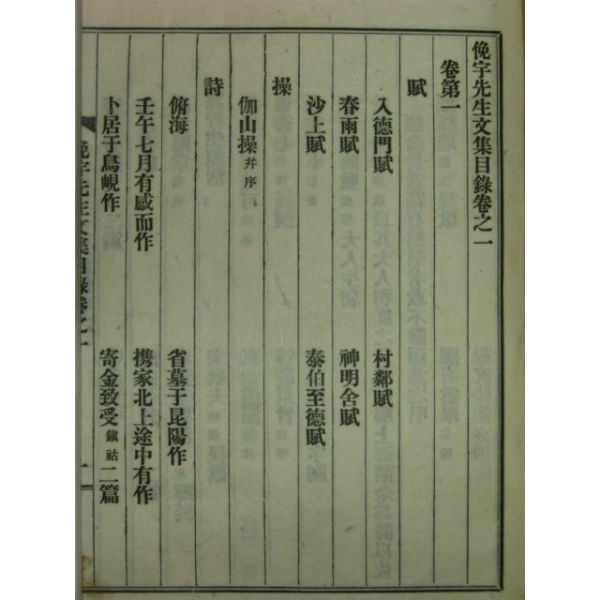 俛宇先生文集目錄卷之一
卷第一
賦
入德門賦 村鄰賦
春雨賦 神明舍賦
沙上賦 泰伯至德賦
操
伽山操 并序
詩
俯海 省墓于昆陽作
壬午七月有感而作 携家北上途中有作
卜居于鳥峴作 寄金致受 鎭祜 二篇
俛宇先生文集目錄卷之一 一